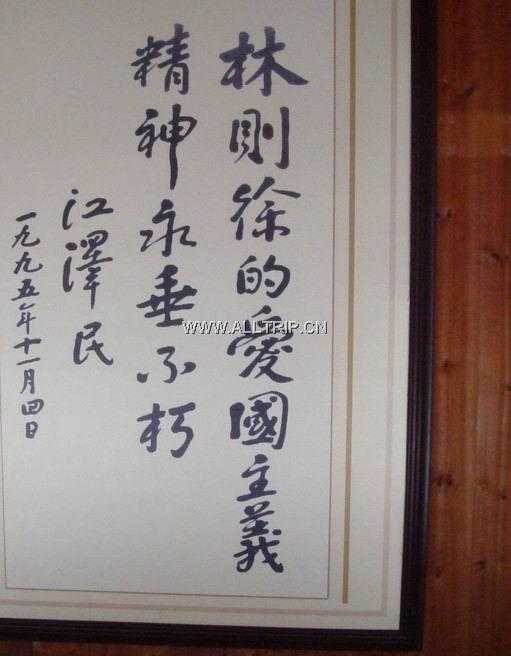 林則徐的愛國主義
精神永垂不朽
江澤民
一九九五年十一月四日
WWW.ALLTRIP.CN